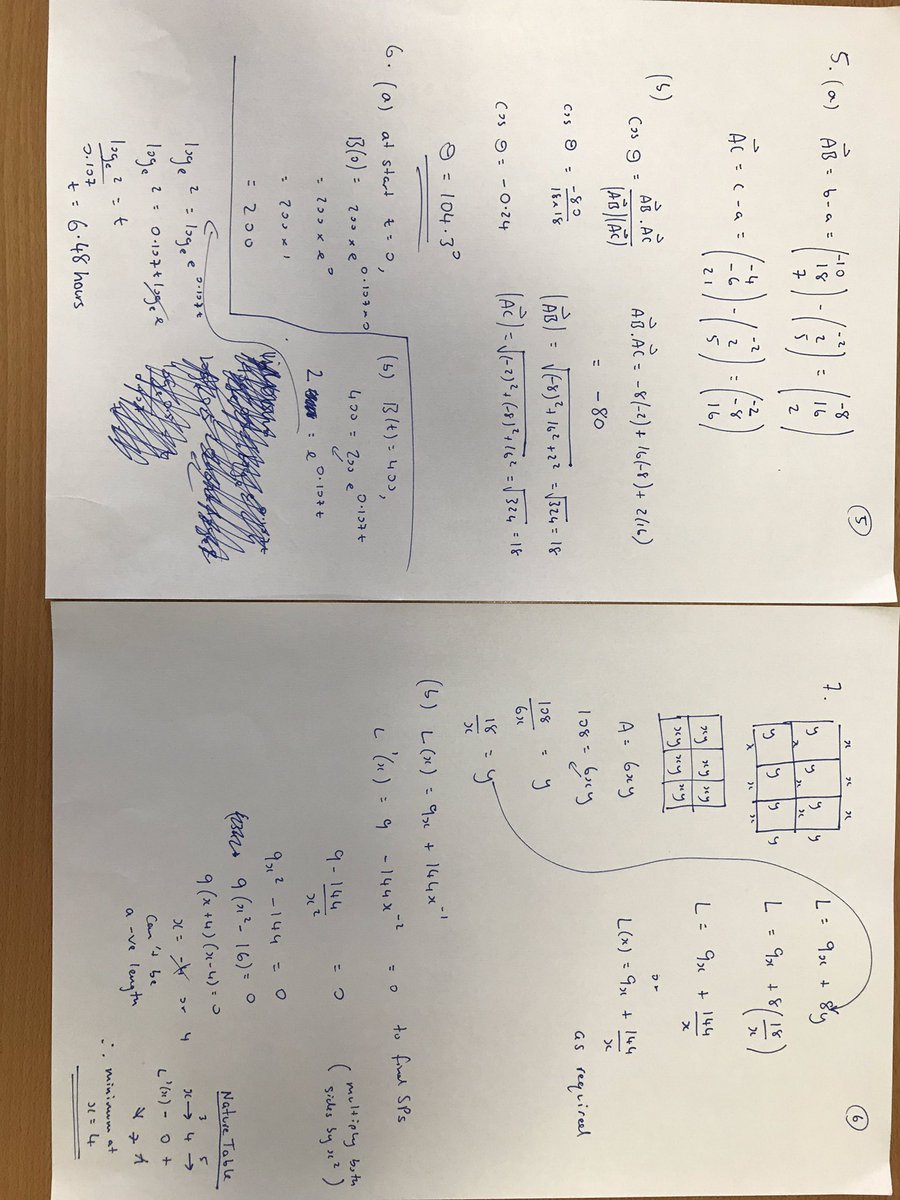 5
5. (a) AB = b - a = (-10 18 7) - (-2 2 5) = (-8 16 2)
AC = c - a = (-4 -6 21) - (-2 2 5) = (-2 -8 16)
(b) cos θ = AB.AC / |AB||AC|
AB.AC = -8(-2) + 16(-8) + 2(16)
= -80
cos θ = -80 / 18x18
|AB| = √(-8)²+16²+2² = √324 = 18
cos θ = -0.24
|AC| = √(-2)²+(-8)²+16² = √324 = 18
θ = 104.3°
6. (a) at start t = 0,
B(0) = 200 x e^0.107x0
= 200 x e^0
= 200 x 1
= 200
(b) B(t) = 400,
400 = 200 e^0.107t
2 = e^0.107t
log_e 2 = log_e e^0.107t
log_e 2 = 0.107t log_e e
log_e 2 / 0.107 = t
t = 6.48 hours
6
7.
x x x
y y y y
x x x
y y y y
x x x
L = 9x + 8y
L = 9x + 8(18/x)
L = 9x + 144/x
or
L(x) = 9x + 144/x
as required
xy xy xy
xy xy xy
A = 6xy
108 = 6xy
108/6x = y
18/x = y
(b) L(x) = 9x + 144x^-1
L'(x) = 9 - 144x^-2 = 0 to find SPs
9 - 144/x² = 0 (multiply both sides by x²)
9x² - 144 = 0
9(x² - 16) = 0
9(x+4)(x-4) = 0
x = -4 or 4
Can't be
a -ve length
Nature Table
3 5
x → 4 →
L'(x) - 0 +
↘ → ↗
∴ minimum at
x = 4